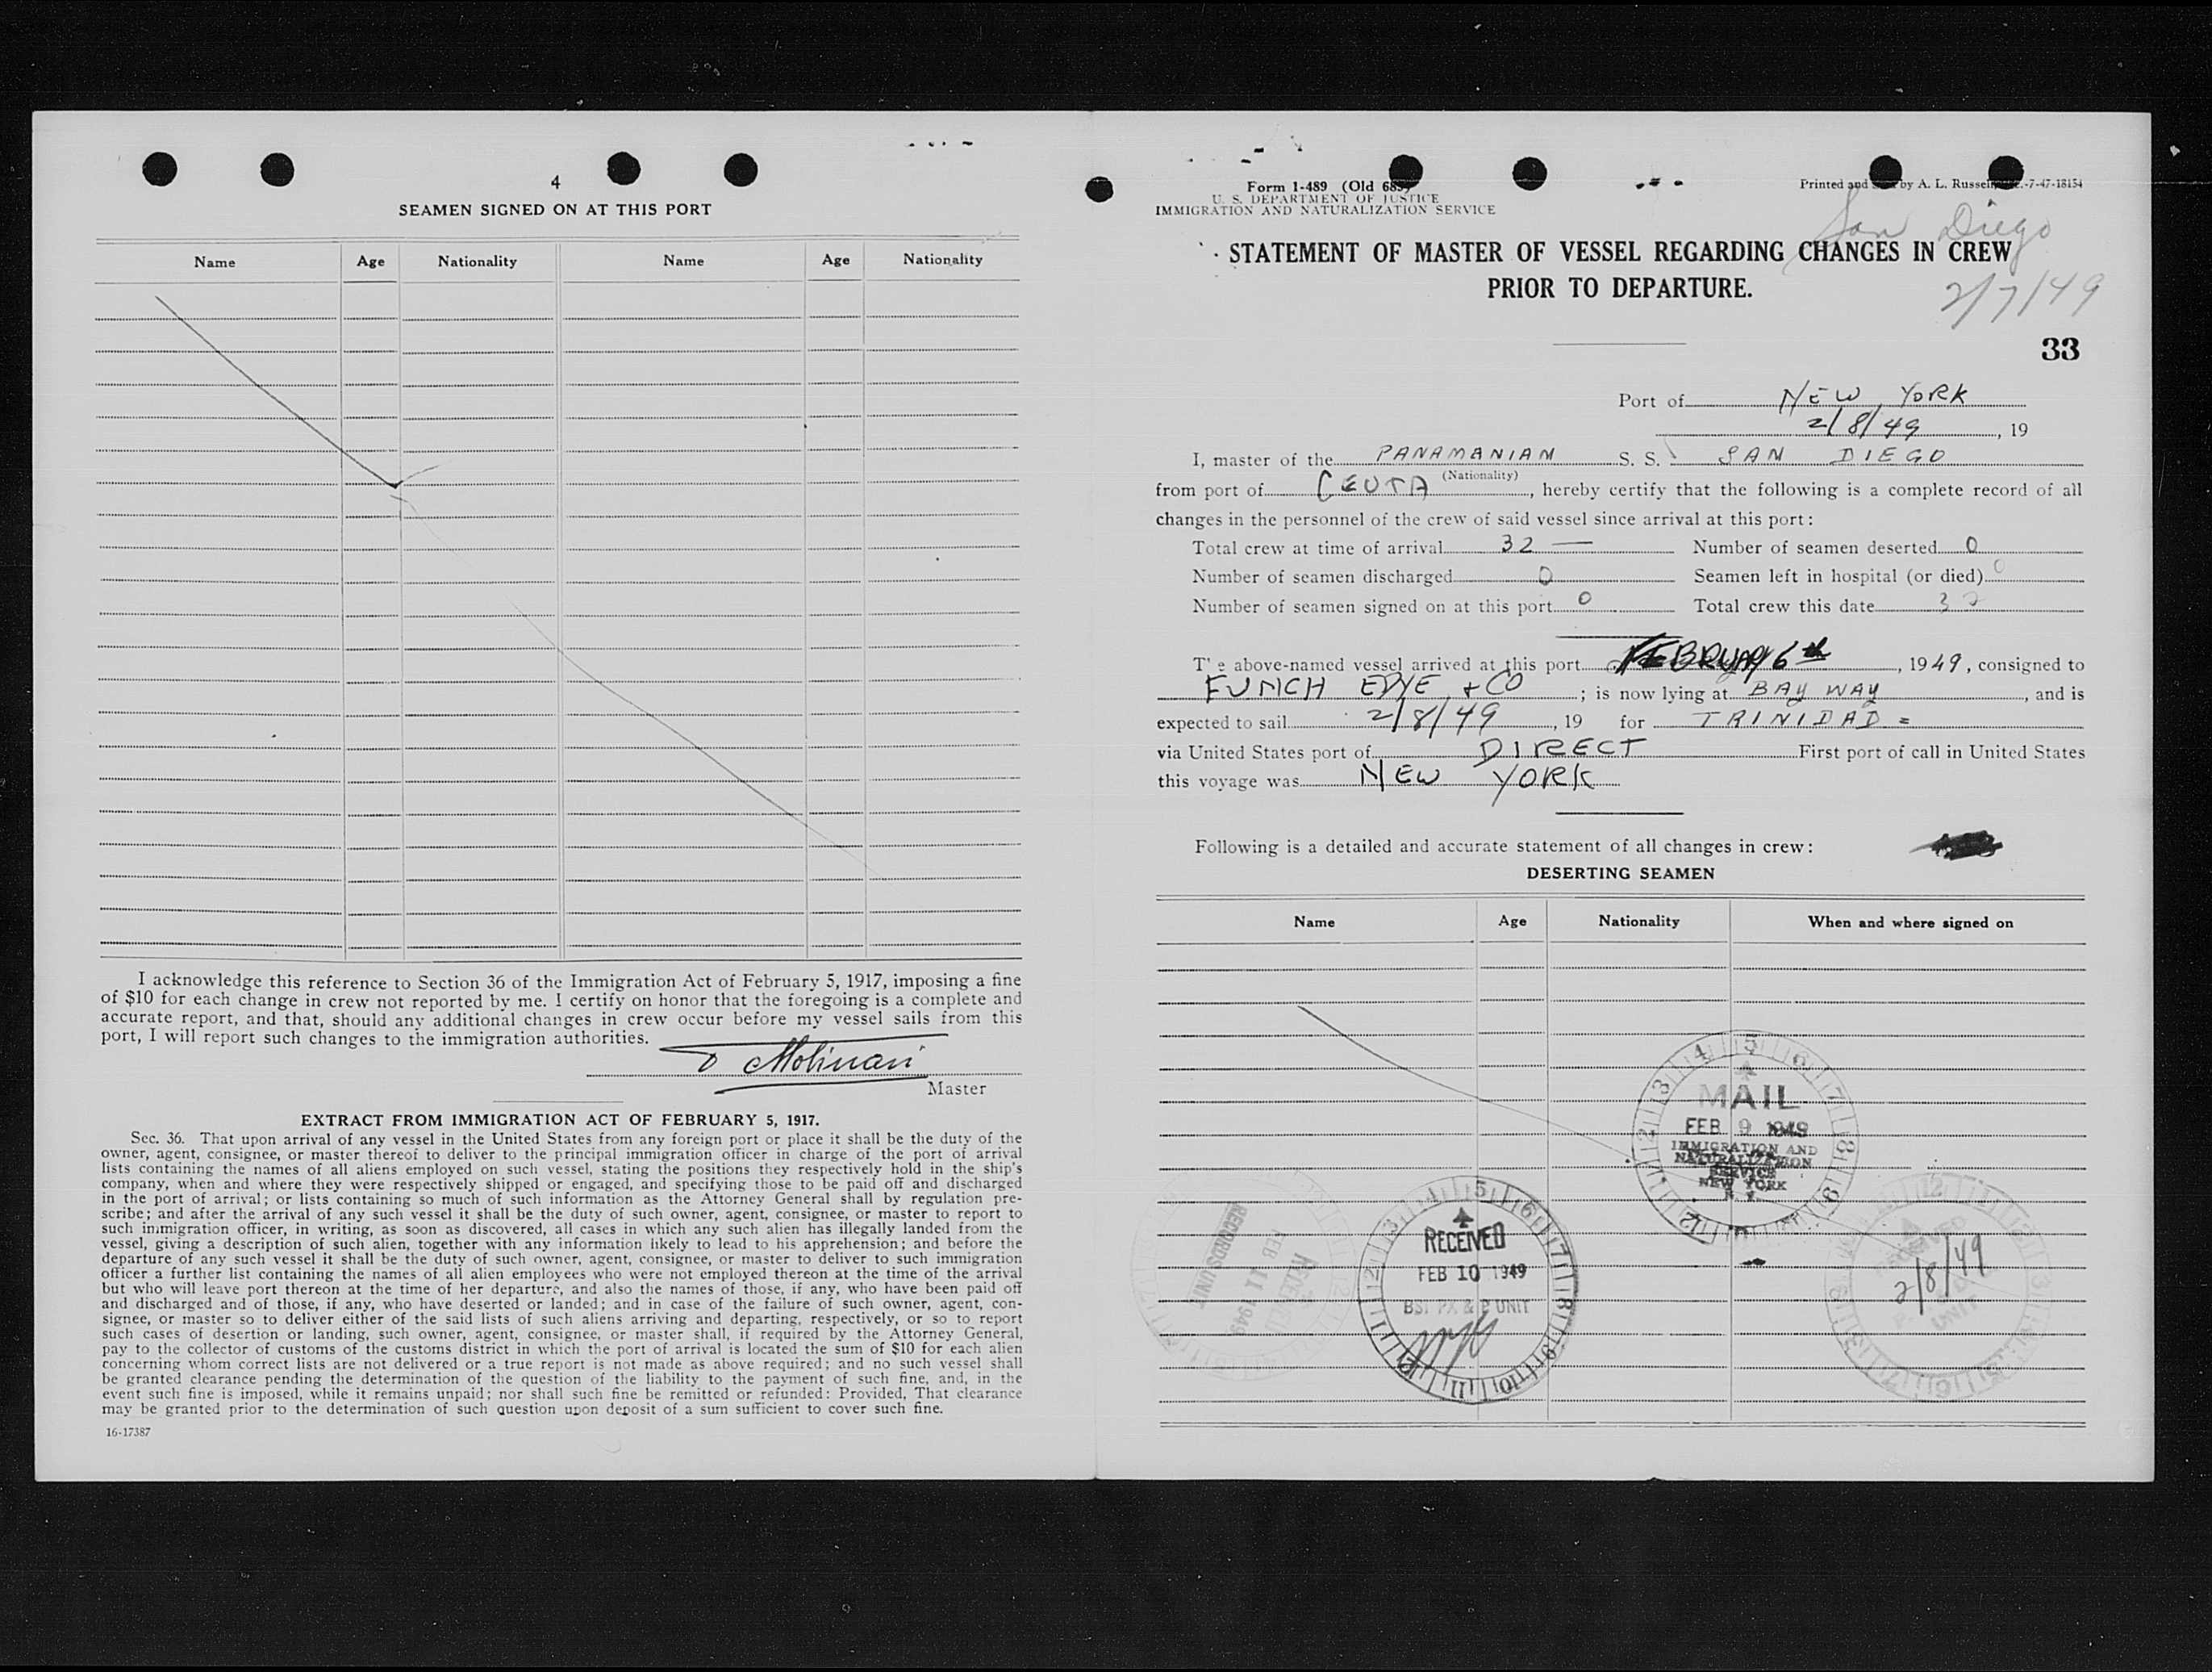 4
SEAMEN SIGNED ON AT THIS PORT
Name Age Nationality Name Age Nationality
I acknowledge this reference to Section 36 of the Immigration Act of February 5, 1917, imposing a fine
of $10 for each change in crew not reported by me. I certify on honor that the foregoing is a complete and
accurate report, and that, should any additional changes in crew occur before my vessel sails from this
port, I will report such changes to the immigration authorities.
Molinari
Master
EXTRACT FROM IMMIGRATION ACT OF FEBRUARY 5, 1917.
Sec. 36. That upon arrival of any vessel in the United States from any foreign port or place it shall be the duty of the
owner, agent, consignee, or master thereof to deliver to the principal immigration officer in charge of the port of arrival
lists containing the names of all aliens employed on such vessel, stating the positions they respectively hold in the ship's
company, when and where they were respectively shipped or engaged, and specifying those to be paid off and discharged
in the port of arrival; or lists containing so much of such information as the Attorney General shall by regulation pre-
scribe; and after the arrival of any such vessel it shall be the duty of such owner, agent, consignee, or master to report to
such immigration officer, in writing, as soon as discovered, all cases in which any such alien has illegally landed from the
vessel, giving a description of such alien, together with any information likely to lead to his apprehension; and before the
departure of any such vessel it shall be the duty of such owner, agent, consignee, or master to deliver to such immigration
officer a further list containing the names of all alien employees who were not employed thereon at the time of the arrival
but who will leave port thereon at the time of her departure, and also the names of those, if any, who have been paid off
and discharged and of those, if any, who have deserted or landed; and in case of the failure of such owner, agent, con-
signee, or master so to deliver either of the said lists of such aliens arriving and departing, respectively, or so to report
such cases of desertion or landing, such owner, agent, consignee, or master shall, if required by the Attorney General,
pay to the collector of customs of the customs district in which the port of arrival is located the sum of $10 for each alien
concerning whom correct lists are not delivered or a true report is not made as above required; and no such vessel shall
be granted clearance pending the determination of the question of the liability to the payment of such fine, and, in the
event such fine is imposed, while it remains unpaid; nor shall such fine be remitted or refunded: Provided, That clearance
may be granted prior to the determination of such question upon deposit of a sum sufficient to cover such fine.
16-17387
Form I-489 (Old 689)
U. S. DEPARTMENT OF JUSTICE
IMMIGRATION AND NATURALIZATION SERVICE
Printed and by A. L. Russell -7-47-18154
San Diego
STATEMENT OF MASTER OF VESSEL REGARDING CHANGES IN CREW
PRIOR TO DEPARTURE.
2/7/49
33
Port of NEW YORK
2/8/49, 19
I, master of the PANAMANIAN S. S. SAN DIEGO
(Nationality)
from port of CEUTA, hereby certify that the following is a complete record of all
changes in the personnel of the crew of said vessel since arrival at this port:
Total crew at time of arrival 32 — Number of seamen deserted 0
Number of seamen discharged 0 Seamen left in hospital (or died) 0
Number of seamen signed on at this port 0 Total crew this date 32
The above-named vessel arrived at this port FEBRUARY 6th, 1949, consigned to
FUNCH EDYE + CO; is now lying at BAY WAY, and is
expected to sail 2/8/49, 19 for TRINIDAD =
via United States port of DIRECT First port of call in United States
this voyage was NEW YORK
Following is a detailed and accurate statement of all changes in crew:
DESERTING SEAMEN
Name Age Nationality When and where signed on
MAIL
FEB 9 1949
IMMIGRATION AND
NATURALIZATION
SERVICE
NEW YORK
N. Y.
RECEIVED
FEB 10 1949
UNIT
RECEIVED
FEB 11 1949
RECORDS UNIT
2/8/49